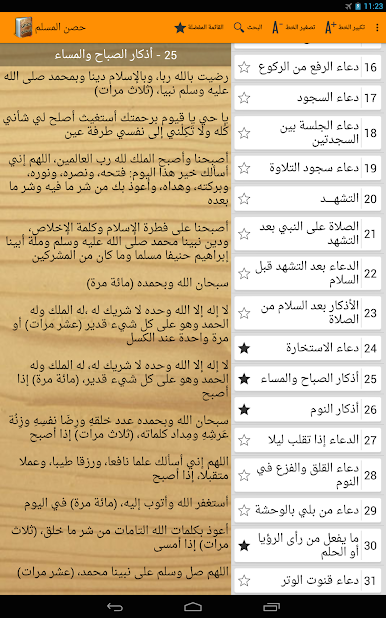 11:23
حصن المسلم
القائمة المفضلة
البحث
تصغير الخط
تكبير الخط
25 - أذكار الصباح والمساء
رضيت بالله ربا، وبالإسلام دينا وبمحمد صلى الله
عليه وسلم نبيا، (ثلاث مرات)
يا حي يا قيوم برحمتك أستغيث أصلح لي شأني
كله ولا تكلني إلى نفسي طرفة عين
أصبحنا وأصبح الملك لله رب العالمين، اللهم إني
أسألك خير هذا اليوم: فتحه، ونصره، ونوره،
وبركته، وهداه، وأعوذ بك من شر ما فيه وشر ما
بعده
أصبحنا على فطرة الإسلام وكلمة الإخلاص،
ودين نبينا محمد صلى الله عليه وسلم وملة أبينا
إبراهيم حنيفا مسلما وما كان من المشركين
سبحان الله وبحمده (مائة مرة)
لا إله إلا الله وحده لا شريك له ،له الملك وله
الحمد وهو على كل شيء قدير (عشر مرات) أو
مرة واحدة عند الكسل
لا إله إلا الله وحده لا شريك له ،له الملك وله
الحمد وهو على كل شيء قدير، (مائة مرة) إذا
أصبح
سبحان الله وبحمده عدد خلقه ورضا نفسه وزنة
عرشه ومداد كلماته، (ثلاث مرات) إذا أصبح
اللهم إني أسألك علما نافعا، ورزقا طيبا، وعملا
متقبلا، إذا أصبح
أستغفر الله وأتوب إليه، (مائة مرة) في اليوم
أعوذ بكلمات الله التامات من شر ما خلق، (ثلاث
مرات) إذا أمسى
اللهم صل وسلم على نبينا محمد، (عشر مرات)
16 دعاء الرفع من الركوع
17 دعاء السجود
18 دعاء الجلسة بين
السجدتين
19 دعاء سجود التلاوة
20 التشهـــد
21 الصلاة على النبي بعد
التشهد
22 الدعاء بعد التشهد قبل
السلام
23 الأذكار بعد السلام من
الصلاة
24 دعاء الاستخارة
25 أذكار الصباح والمساء
26 أذكار النوم
27 الدعاء إذا تقلب ليلا
28 دعاء القلق والفزع في
النوم
29 دعاء من بلي بالوحشة
30 ما يفعل من رأى الرؤيا
أو الحلم
31 دعاء قنوت الوتر